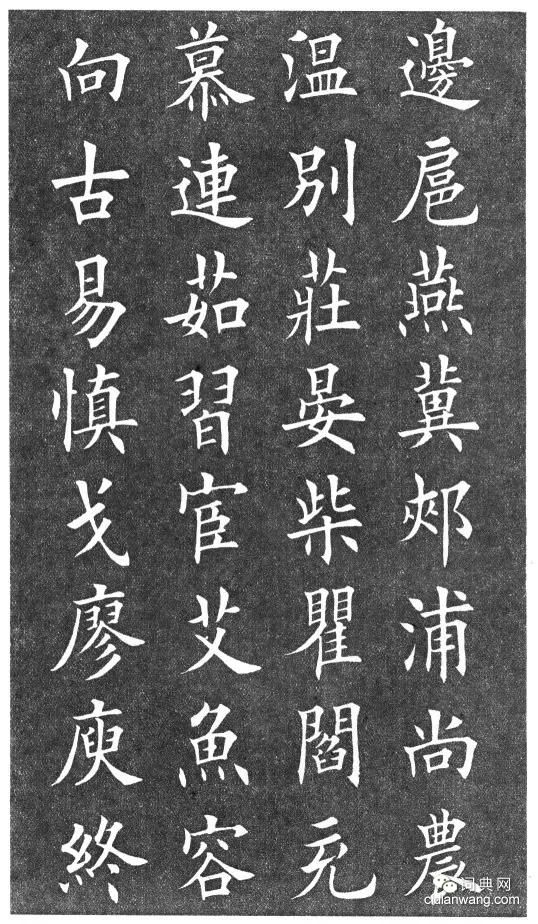 邊扈燕冀郟浦尚農
温別莊晏柴瞿閻充
慕連茹習宦艾魚容
向古易慎戈廖庾終
词典网
cidianwang.com